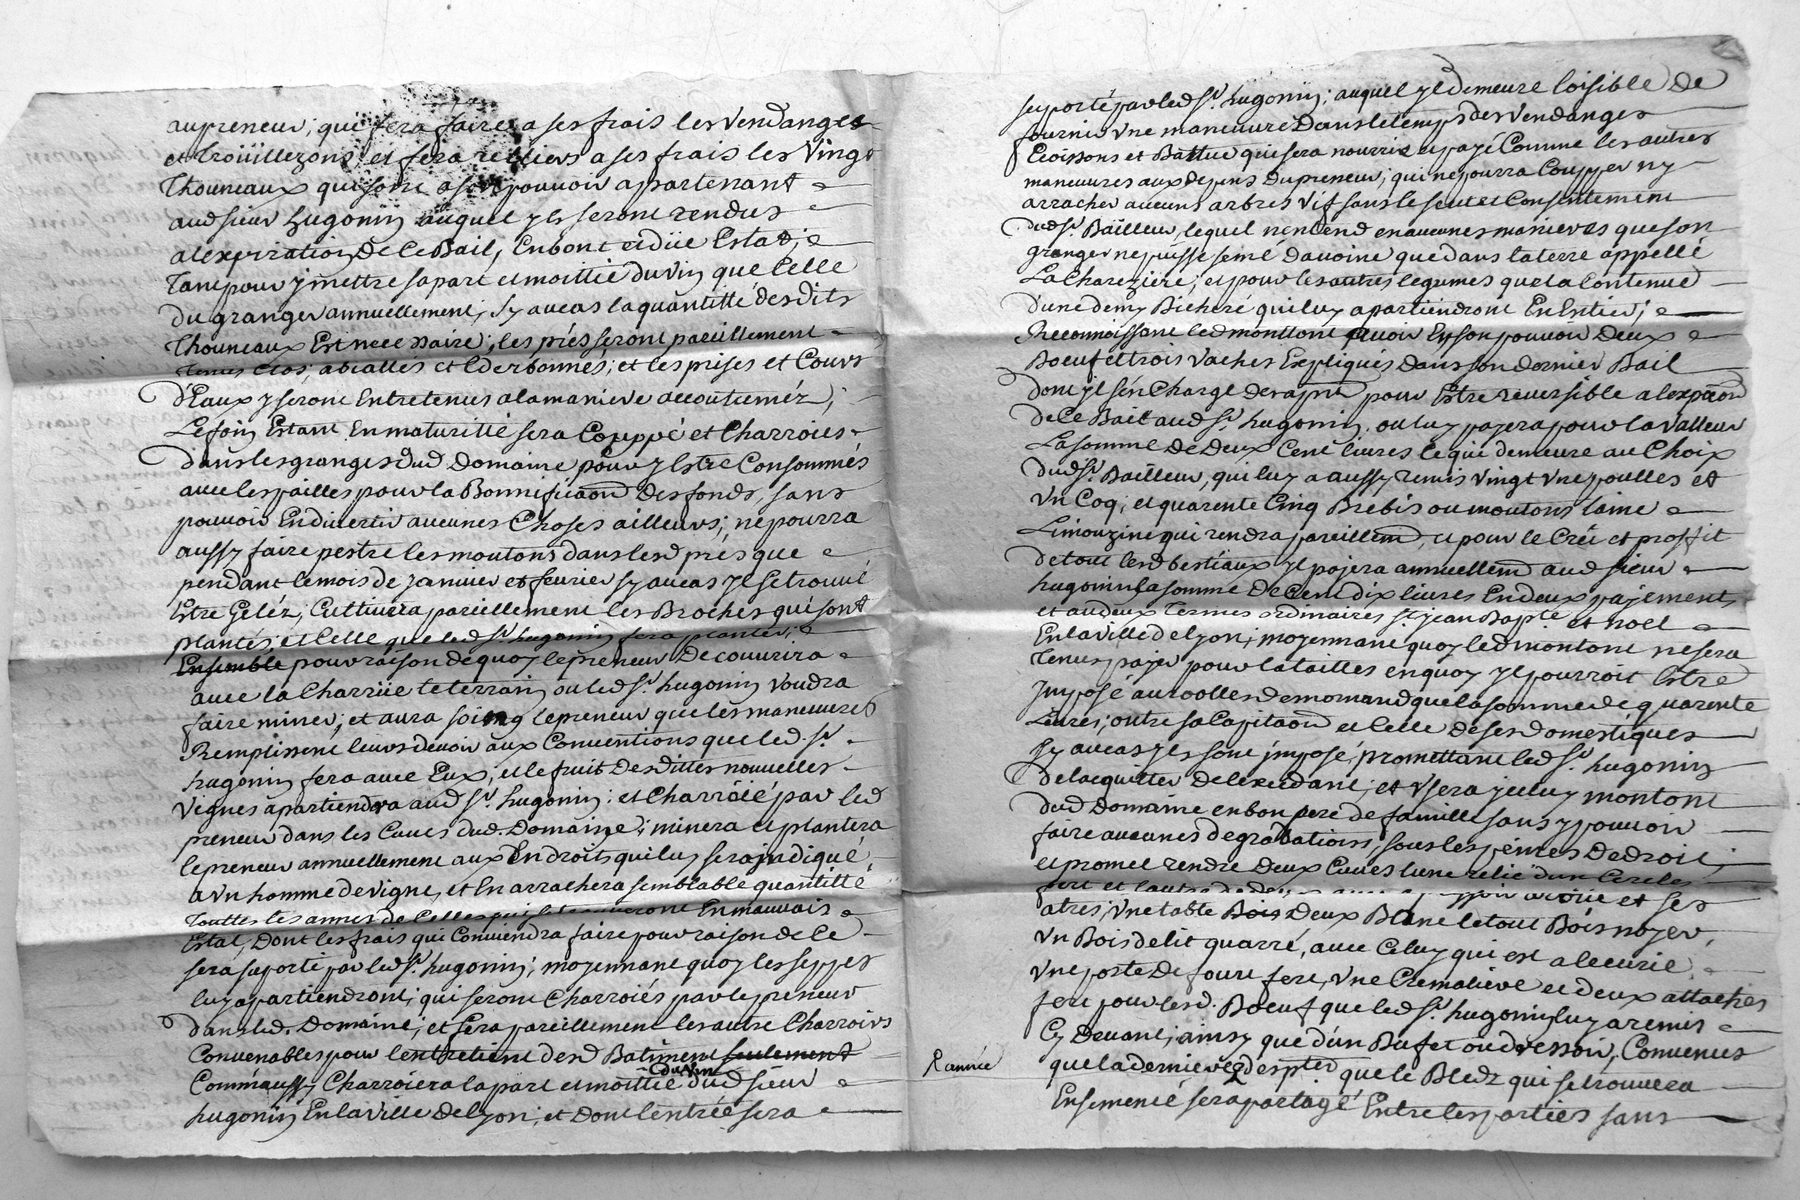 aupreneur; qui fera faire a ses frais les vendanges
et trouillezons et fera relliers a ses frais les vingt
Thouneaux qui sont a son pouvoir appartenant
aud sieur hugonin auquel yls seront rendus
alexpiration de ce Bail, En bont et düe Estat;
Tant pour y mettre sa part et moittié du vin que Celle
du granger annuellement, sy aucas la quantitté desdits
Thouneaux Est necessaire; les prés seront pareillement
Tenus Clos, abiallés et Ederbonnés; et les prises et Cours
d'Eaux y seront Entretenus a la maniere accoutuméz;
Le foin Estant En maturitté sera Couppé et Charroiés
dans les granges dud Domaine pour y Estre Consommés
avec les pailles pour la Bonnificaon des fonds, sans
pouvoir En divertir aucunes Choses ailleurs; ne pourra
aussy faire pestre les moutons dans lesd prés que
pendant le mois de janvier et fevrier sy aucas yl se trouve
Estre Geléz, Cultivera pareillement les Broches qui sont
plantés, et Celle que led sr. hugonin fera planter;
Ensemble pour raison de quoy le preneur Decouvrira
avec la Charrüe le terrain ou led sr. hugonin voudra
faire miner; et aura soing le preneur que les maneuvres
Remplissent leurs devoir aux Conventions que led. sr.
hugonin fera avec Eux; et le fruit desdittes nouvelles
vignes apartiendra aud sr. hugonin; et Charroié par led
preneur dans les Caves dud. Domaine; minera et plantera
le preneur annuellement aux Endroits qui luy sera jndiqué
a un homme de vigne, et En arrachera semblable quantitté
Touttes les années de Celles qui se trouveront En mauvais
Estat, Dont les frais qui Conviendra faire pour raison de Ce
sera suporté par led sr. hugonin; moyennant quoy les seppes
luy apartiendront; qui seront Charroiés par le preneur
dans led. Domaine; et fera pareillement les autre Charroirs
Convenables pour lentretient desd Batiment seulement
du vin
Comm'aussy Charroiera la part et moittié dud sieur
hugonin En la ville de Lyon; et dont lentrée sera
suporté par led sr. hugonin; auquel yl demeure loisible de
fournir une maneuvre dans le temps des vendanges
Moissons et Battue qui sera nourrie et payé Comme les autres
maneuvres aux depens du preneur; qui ne pourra Coupper ny
arracher aucuns arbres vif sans le seut et Consentement
dud sr. Bailleur, lequel n'entend en aucunes manieres que son
granger ne puisse semé davoine que dans la terre appellé
La Chareziere; et pour les autres legumes que la Contenue
d'une demy Bicheré qui luy apartiendront En Entier;
Reconnoissant led montlont avoir En son pouvoir deux
Boeuf et trois vaches Expliqués dans son dernier Bail
dont yl se Charge pour Estre reversible a lexpiraon
de Ce Bail aud sr. hugonin, ou luy payera pour la valleur
La somme de deux Cent livres le qui demeure au Choix
dud sr. Bailleur, qui luy a aussy remis vingt une poulles et
un Coq; et quarente Cinq Brebis ou moutons laine
Limouzine qui rendra pareillemt, et pour le Crêt et proffit
de tout lesd bestiaux yl payera annuellemt aud sieur
hugonin la somme de Cent dix livres En deux payements
et au deux Termes ordinaires st. jean Bapte et noel
En la ville de Lyon; moyennant quoy led montont ne sera
Tenus payer pour la tailles en quoy yl pourroit Estre
Jmposé au rolles de mornand que la somme de quarente
Livres; outre sa Capitaon et Celle de ses domestiques
Sy aucas yls sont jmposé, promettant led sr. hugonin
de lacquitter de lexcedant; et usera jceluy montont
dud Domaine en bon pere de famille sans y pouvoir
faire aucunes degradations, sous les peines de droit;
et promet rendre deux Cuves lune relié dun Cercles
fert et lautre de deux et ses
atres; une table Bois deux Blanc le tout Bois noyer,
un Bois de lit quarré, avec Celuy qui est a lecurie
une porte de fourt fere, une Cremaliere et deux attaches
fere pour lesd. Boeuf que led sr. hugonin luy a remis
Cy devant; ainsy que d'un Bufet ou dressoir, Convenus
Rannée
que la derniere des pted que le Bledz qui se trouvera
Ensemencé sera partagé Entre les parties sans